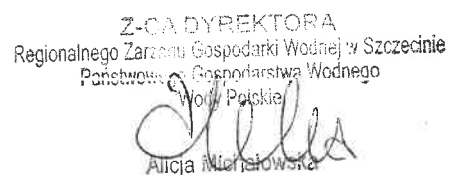 Z-CA DYREKTORA
Regionalnego Zarządu Gospodarki Wodnej w Szczecinie
Państwowego Gospodarstwa Wodnego
Wody Polskie
Alicja Michałowska